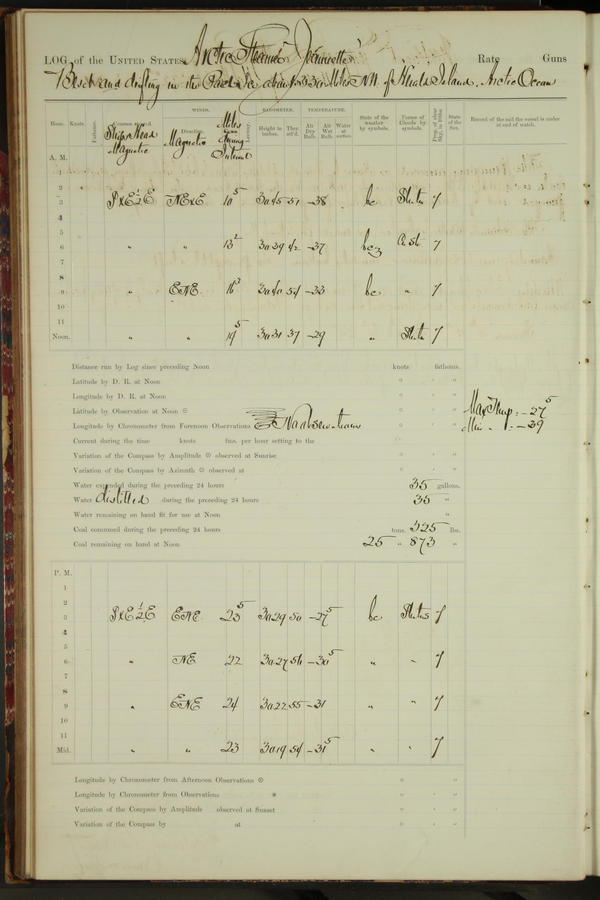 LOG of the United States Arctic Steamer Jeannette Rate Guns
Beset and drifting in the Pack Ice about 330 Miles NW of Herald Island, Arctic Ocean
WINDS. BAROMETER. TEMPERATURE.
Hour. Knots. Fathoms. Courses steered. Direction. Height in inches. Ther. att'd. Air Dry Bulb. Air Wet Bulb. Water at surface. State of the weather by symbols. Forms of Clouds by symbols. Prop. of clear Sky, in 10ths. State of the Sea. Record of the sail the vessel is under at end of watch.
Ship's Head Magnetic Magnetic Miles during Interval
A. M.
1
2
3 NExE 10 5 30.45 51 -38 bc 7
4
5
6 " " 13 2 30.39 42 -37 bcz 7
7
8
9 " ENE 16 3 30.40 54 -33 bc " 7
10
11
Noon. " " 19 5 30.31 37 -29 " 7
Distance run by Log since preceding Noon knots fathoms.
Latitude by D. R. at Noon ° ' "
Longitude by D. R. at Noon ° ' "
Latitude by Observation at Noon ° ' "
Longitude by Chronometer from Forenoon Observations No observations ° ' "
Max Temp: -27 5
Min " : -39
Current during the time knots fms. per hour setting to the
Variation of the Compass by Amplitude observed at Sunrise ° ' "
Variation of the Compass by Azimuth observed at ° ' "
Water expended during the preceding 24 hours 35 gallons.
Water distilled during the preceding 24 hours 35 "
Water remaining on hand fit for use at Noon "
Coal consumed during the preceding 24 hours tons. 525 lbs.
Coal remaining on hand at Noon 25 " 873 "
P. M.
1
2
3 ENE 23 5 30.29 50 -27 5 bc 7
4
5
6 " NE 22 30.27 56 -30 5 " " 7
7
8
9 " ENE 24 30.22 55 -31 " " 7
10
11
Mid. " " 23 30.19 54 -31 5 " " 7
Longitude by Chronometer from Afternoon Observations ° ' "
Longitude by Chronometer from Observations * ° ' "
Variation of the Compass by Amplitude observed at Sunset ° ' "
Variation of the Compass by at ° ' "